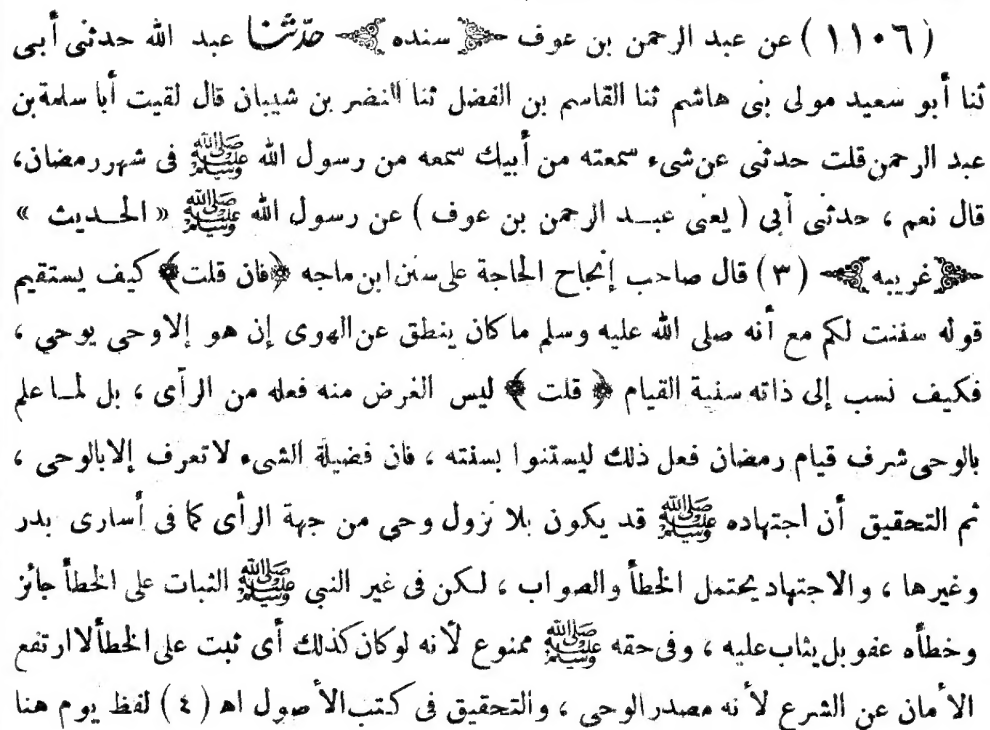 (١١٠٦) عن عبد الرحمن بن عوف ﴿سنده﴾ حدّثنا عبد الله حدثنى أبى
ثنا أبو سعيد مولى بنى هاشم ثنا القاسم بن الفضل ثنا النضر بن شيبان قال لقيت أبا سلمة بن
عبد الرحمن قلت حدثنى عن شىء سمعته من أبيك سمعه من رسول الله ﷺ فى شهر رمضان،
قال نعم ، حدثنى أبى ( يعنى عبـد الرحمن بن عوف ) عن رسول الله ﷺ « الحـديث »
﴿غريبه﴾ (٣) قال صاحب إنجاح الحاجة على سنن ابن ماجه ﴿فان قلت﴾ كيف يستقيم
قوله سننت لكم مع أنه صلى الله عليه وسلم ما كان ينطق عن الهوى إن هو إلا وحى يوحى ،
فكيف نسب إلى ذاته سنية القيام ﴿ قلت ﴾ ليس الغرض منه فعله من الرأى ، بل لمـا علم
بالوحى شرف قيام رمضان فعل ذلك ليستنوا بسنته ، فان فضيلة الشىء لا تعرف إلا بالوحى ،
ثم التحقيق أن اجتهاده ﷺ قد يكون بلا نزول وحى من جهة الرأى كما فى أسارى بدر
وغيرها ، والاجتهاد يحتمل الخطأ والصواب ، لـكن فى غير النبي ﷺ الثبات على الخطأ جائز
وخطأه عفو بل يثاب عليه ، وفى حقه ﷺ ممنوع لأنه لو كان كذلك أى ثبت على الخطأ لا ارتفع
الأمان عن الشرع لأنه مصدر الوحى ، والتحقيق فى كتب الأصول اه (٤) لفظ يوم هنا